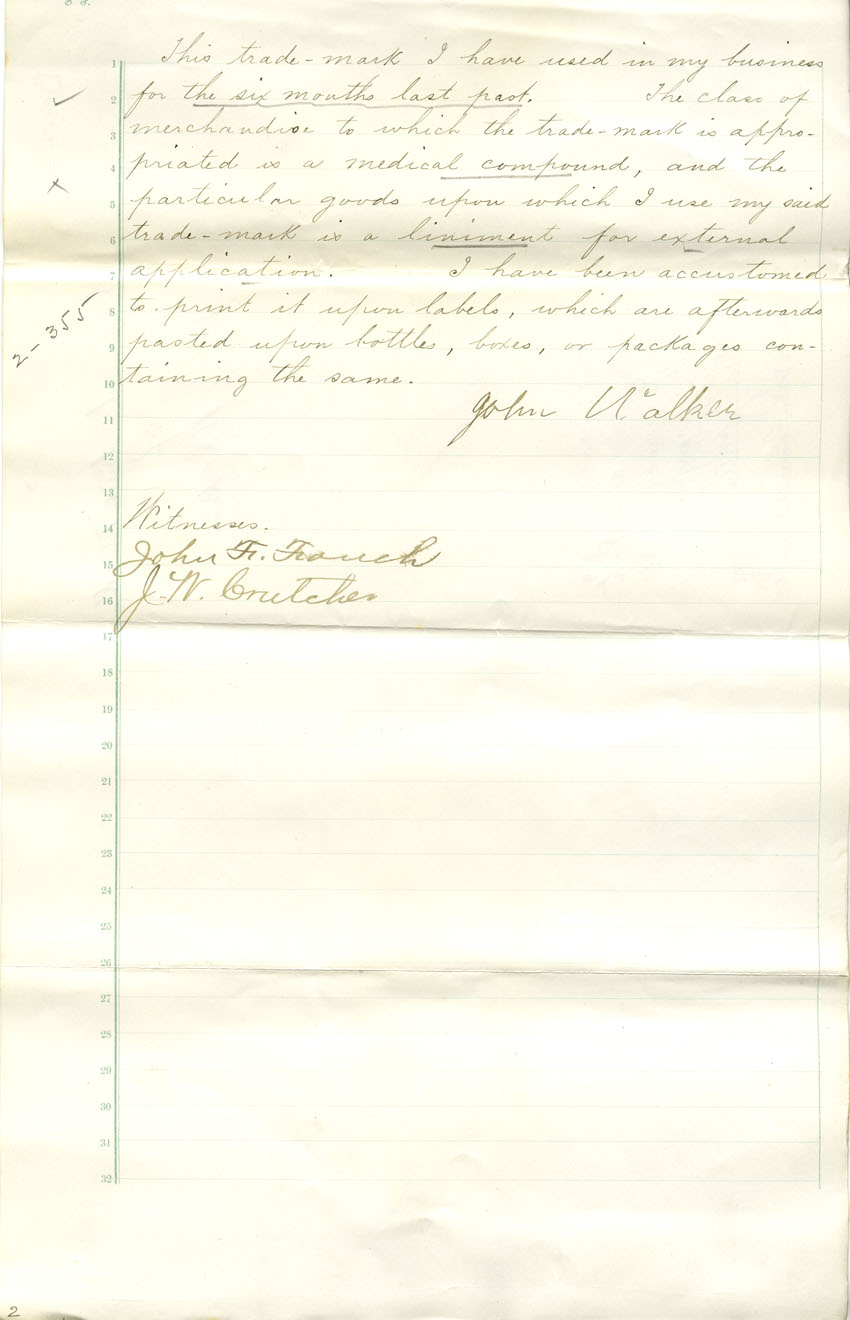 This trade-mark I have used in my business
for the six months last past. The class of
merchandise to which the trade-mark is appro-
priated is a medical compound, and the
particular goods upon which I use my said
trade-mark is a liniment for external
application. I have been accustomed
to print it upon labels, which are afterwards
pasted upon bottles, boxes, or packages con-
taining the same.
John Walker
Witnesses.
John F.
J. W. Crutcher
2-355
1
2
3
4
5
6
7
8
9
10
11
12
13
14
15
16
17
18
19
20
21
22
23
24
25
26
27
28
29
30
31
32
2